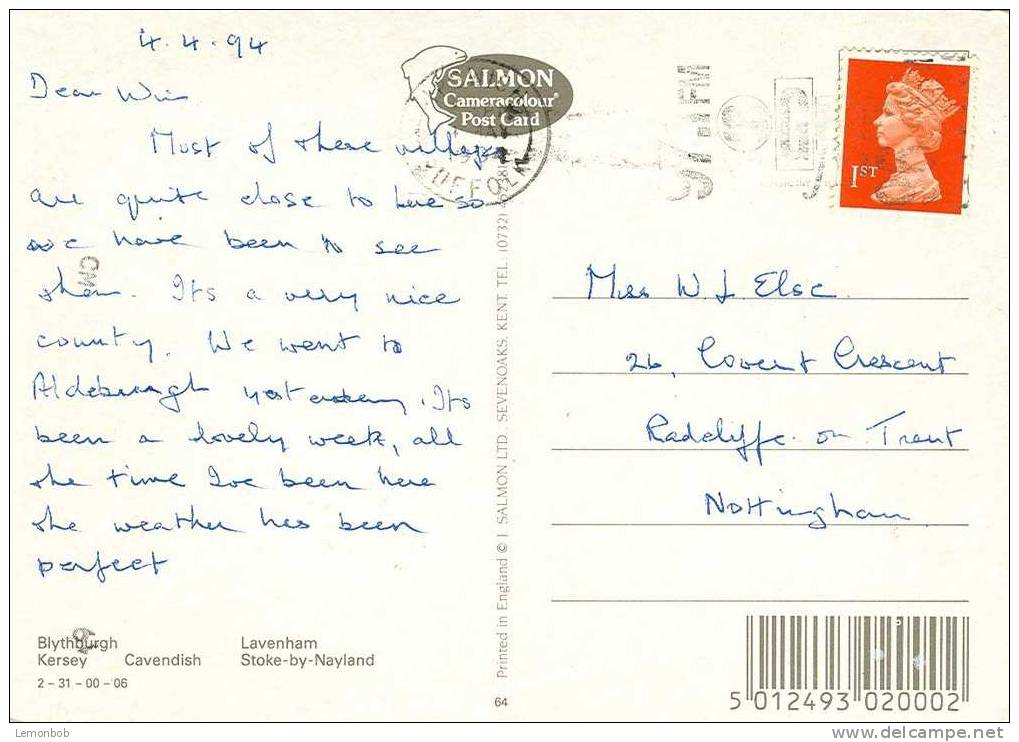 4.4.94
Dear Win
Most of these villages
are quite close to here so
we have been to see
them. Its a very nice
county. We went to
Aldeburgh yesterday. Its
been a lovely week, all
the time I've been here
the weather has been
perfect
Blythburgh Lavenham
Kersey Cavendish Stoke-by-Nayland
2-31-00-06
SALMON
Cameracolour®
Post Card
SUFFOLK
Printed in England © J. SALMON LTD., SEVENOAKS, KENT. TEL. (0732)
64
1ST
Miss W J Else
26, Covert Crescent
Radcliffe on Trent
Nottingham
5 012493 020002
Lemonbob
www.delcampe.net